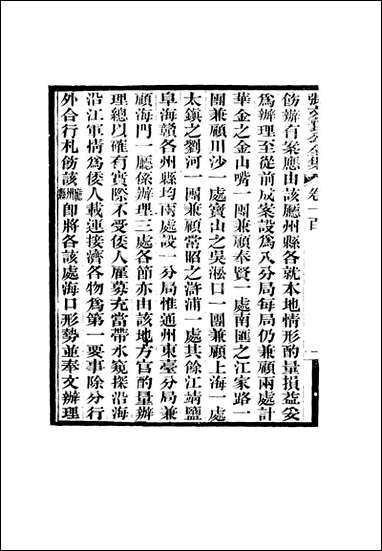 張文襄公全集 卷一百
飭辦有案應由該廳州縣各就本地情形酌量損益妥
為辦理至從前成案設為八分局每局仍兼顧兩處計
華金之金山嘴一團兼顧奉賢一處南匯之江家路一
團兼顧川沙一處寶山之吳淞口一團兼顧上海一處
太鎮之劉河一團兼顧常昭之滸浦一處其餘江靖鹽
阜海贛各州縣均兩處設一分局惟通州東臺分局兼
顧海門一廳係辦理三處各節亦由該地方官酌量辦
理總以確有實際不受倭人雇募充當帶水窺探沿海
沿江軍情為倭人載運接濟各物為第一要事除分行
外合行札飭該廳州縣即將各該處海口形勢並奉文辦理